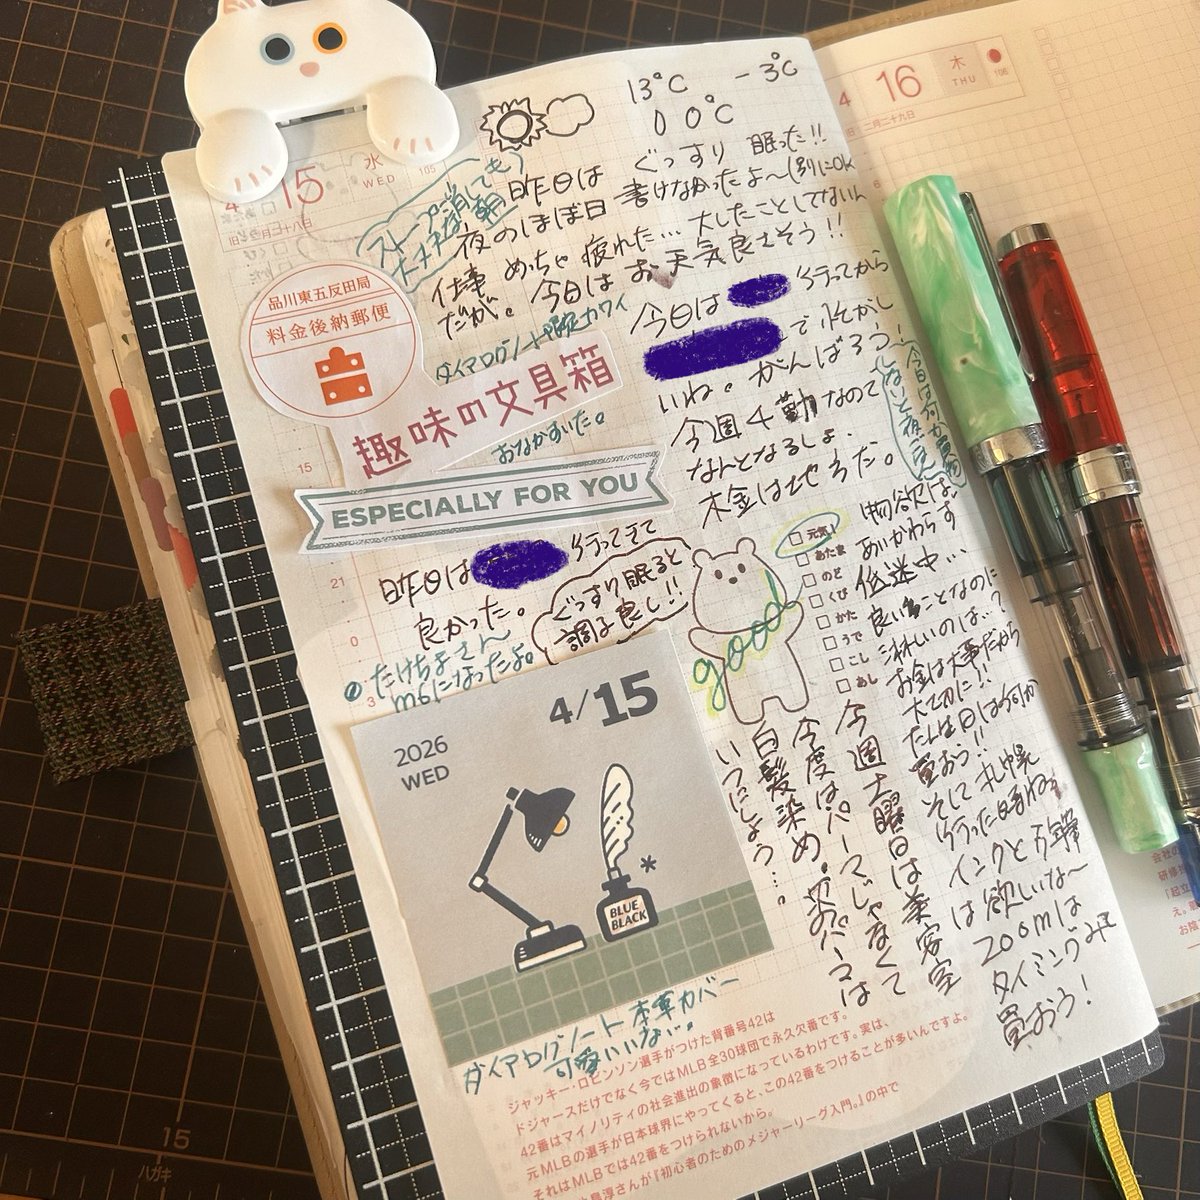 13℃ -3℃
0 0℃
4 15 水 WED 105
旧二月二十八日
ストーブ消しても
大丈夫な朝
昨日は ぐっすり 眠った!!
夜のほぼ日 書けなかったよ〜(別にOK
仕事 めっちゃ 疲れた… 大したことしてないん
だが。 今日は お天気良さそう!!
品川東五反田局
料金後納郵便
ダイアログノート
趣味の文具箱
おなかすいた。
ESPECIALLY FOR YOU
今日は 行ってから
で忙がし
いね。がんばろう!
今週4勤なので
なんとなるしょ、
木金は
昨日は 行ってきて
良かった。
ぐっすり眠ると
調子良し!!
たけち子さん
m6になったよ。
good
元気!
あたま
のど
くび
かた
うで
こし
あし
物欲は、
あいかわらず
低迷中…
良いことなのに
淋しいのは…?
お金は大事だから
大切に!!
たん生日は何か
買おう!!
そして札幌
行った時ね
インクと万年筆
は欲しいな〜
zoomは
タイミング見て
買おう!
今週土曜日は美容室
今度はパーマじゃなくて
白髪染め。次のパーマは
いつにしよう…。
4/15
2026
WED
BLUE
BLACK
ダイアログノート 本革カバー
可愛いいな。
ジャッキー・ロビンソン選手がつけた背番号42は
ドジャースだけでなく今ではMLB全30球団で永久欠番です。
42番はマイノリティの社会進出の象徴になっているわけです。実は、
元MLBの選手が日本球界にやってくると、この42番をつけることが多いんですよ。
それはMLBでは42番をつけられないから。
淳さんが『初心者のためのメジャーリーグ入門。』の中で
15
21
0
3
4 16 木 THU 106
二月二十九日
6
15
ハガキ